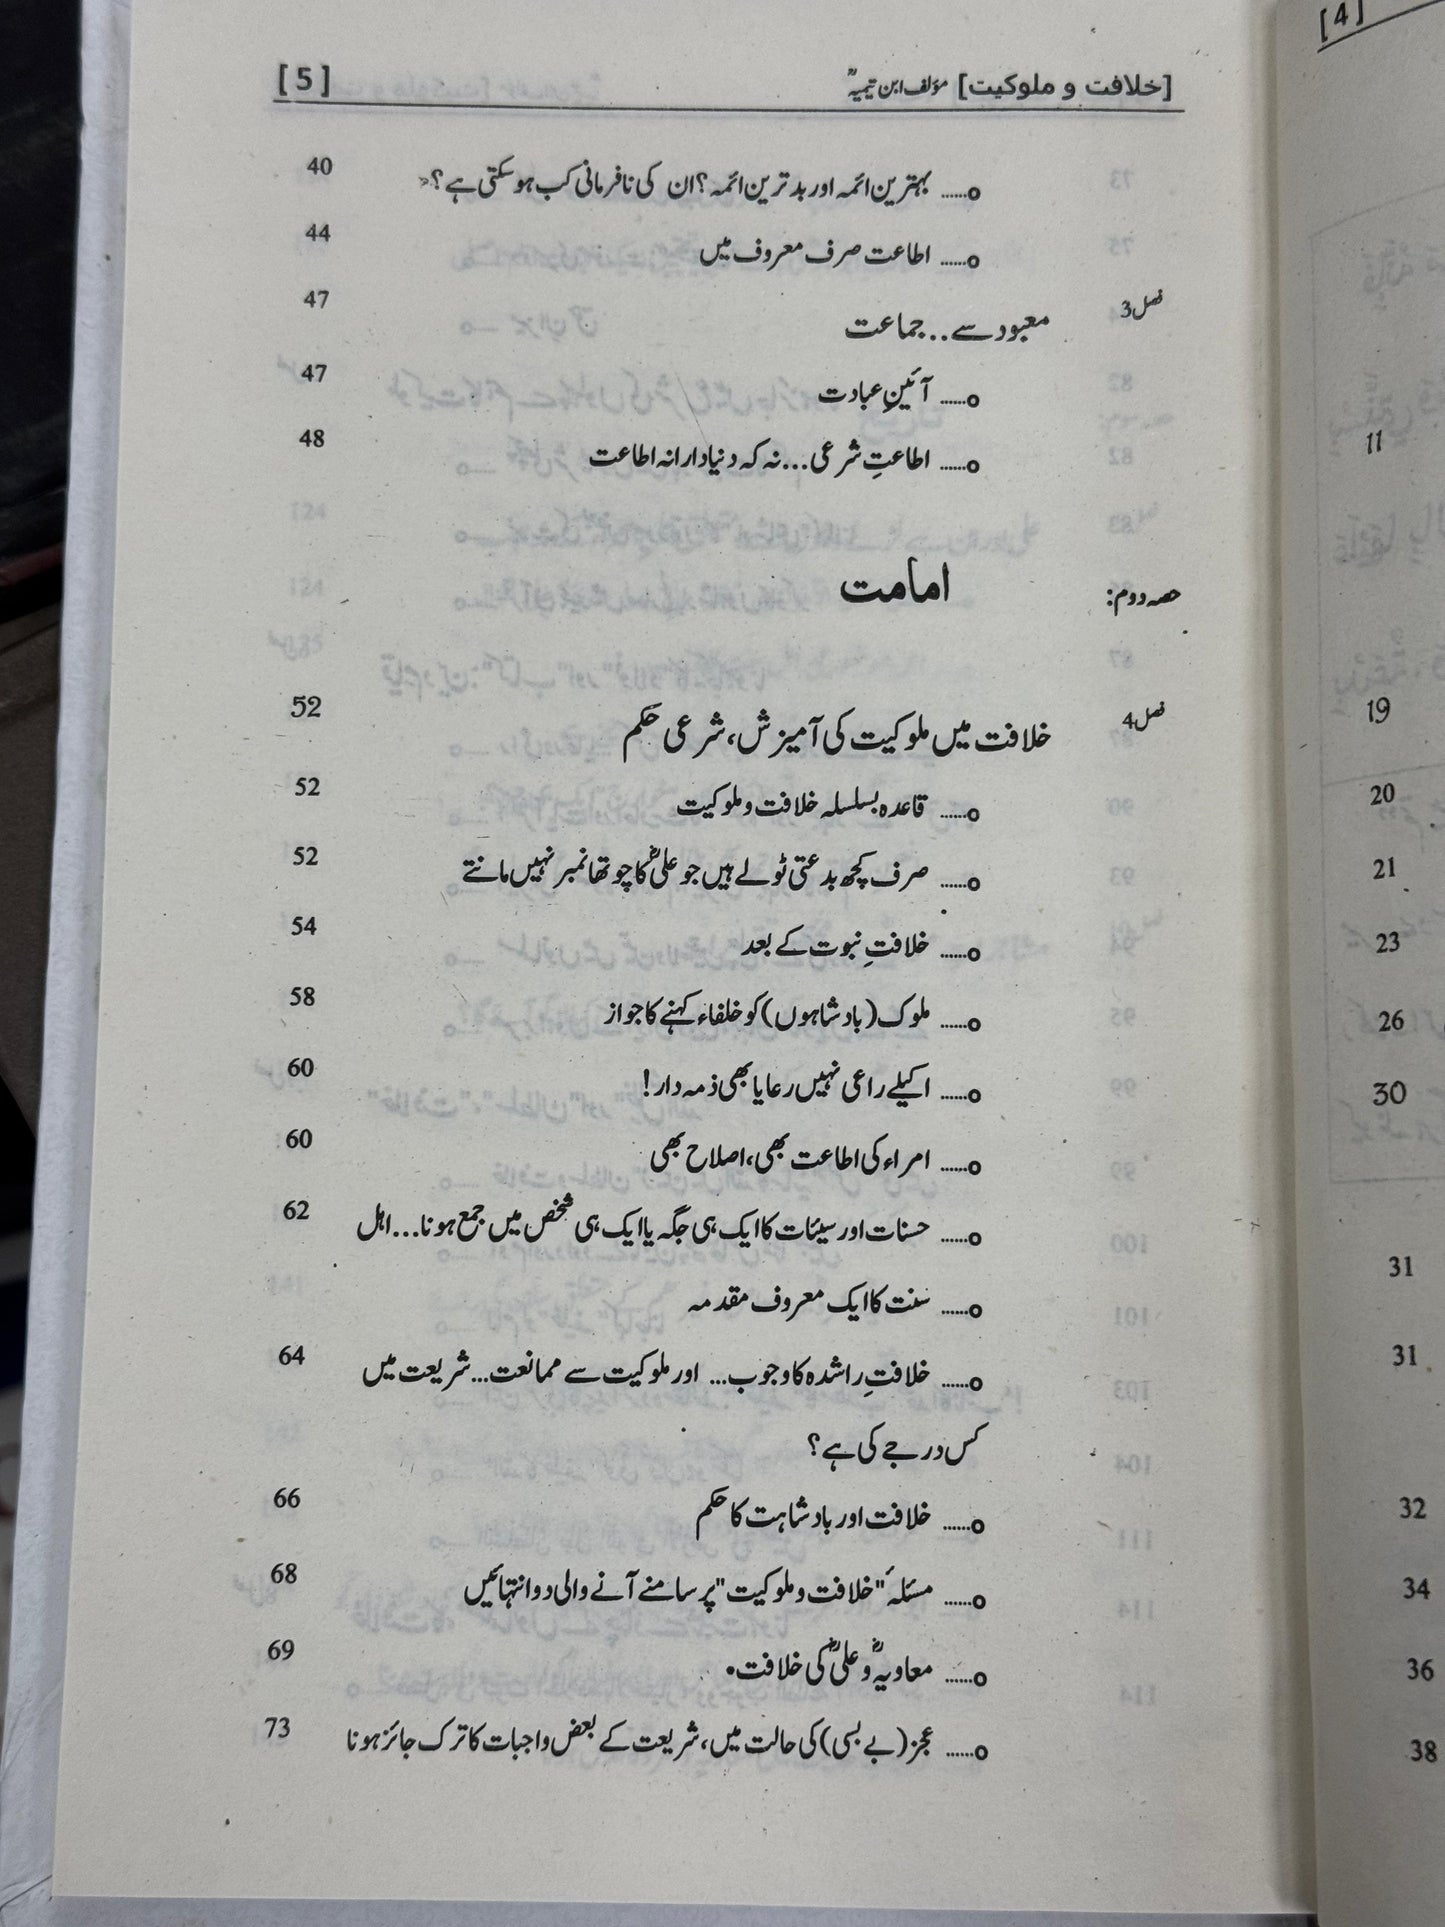 [خلافت و ملوکیت] مؤلف ابن تیمیہؒ [5]
o...... بہترین ائمہ اور بدترین ائمہ؟ ان کی نافرمانی کب ہوسکتی ہے؟ 40
o...... اطاعت صرف معروف میں 44
فصل 3 معبود سے.. جماعت 47
o...... آئینِ عبادت 47
o...... اطاعتِ شرعی... نہ کہ دنیادارانہ اطاعت 48
حصہ دوم: امامت
فصل 4 خلافت میں ملوکیت کی آمیزش، شرعی حکم 52
o...... قاعدہ بسلسلہ خلافت و ملوکیت 52
o...... صرف کچھ بدعتی ٹولے ہیں جو علیؓ کا چوتھا نمبر نہیں مانتے 52
o...... خلافتِ نبوت کے بعد 54
o...... ملوک (بادشاہوں) کو خلفاء کہنے کا جواز 58
o...... اکیلے راعی نہیں رعایا بھی ذمہ دار! 60
o...... امراء کی اطاعت بھی، اصلاح بھی 60
o...... حسنات اور سیئات کا ایک ہی جگہ یا ایک ہی شخص میں جمع ہونا... اہل 62
o...... سنت کا ایک معروف مقدمہ
o...... خلافتِ راشدہ کا وجوب... اور ملوکیت سے ممانعت... شریعت میں 64
کس درجے کی ہے؟
o...... خلافت اور بادشاہت کا حکم 66
o...... مسئلۂ "خلافت و ملوکیت" پر سامنے آنے والی دو انتہائیں 68
o...... معاویہؓ و علیؓ کی خلافت 69
o...... عجز (بے بسی) کی حالت میں، شریعت کے بعض واجبات کا ترک جائز ہونا 73
[4]
11
19
20
21
23
26
30
31
31
32
34
36
38